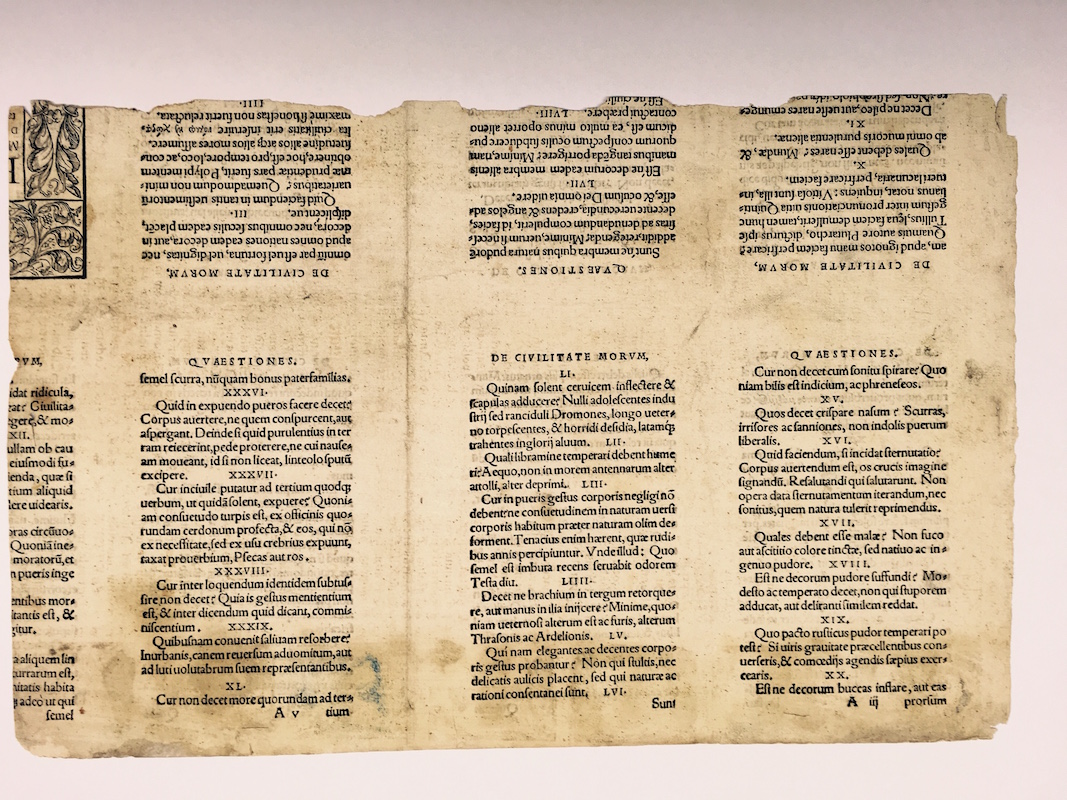 DE CIVILITATE MORVM,
omniũ par est uel fortuna, uel dignitas, nec
apud omnes nationes eadem decora, aut in
decora, nec omnibus seculis eadem placet,
displicent ue. III.
Quid faciendum in tantis uestimentorũ
uarietatibus? Quemadmodum non mini-
ma prudentiæ pars fuerit, Polypi mentem
obtinere, hoc est, pro tempore, loco, ac con-
suetudine alios atq; alios mores assumere.
Ita ciuilitatis erit inseruire
maxime si honestas non fuerit reluctata.
IIII.
QVAESTIONES.
Sunt ne membra quibus natura pudorē
addidit, retegenda? Minime, uerum si necess-
sitas ad denudandum compulerit, id facies,
decente uerecundia, credens & angelos ad-
esse, & oculum Dei omnia uidere.
LVII.
Est ne decorum eadem membra alienis
manibus tangēda porrigere? Minime, nam
quorum conspectum oculis subducere pu-
dicum est, ea multo minus oportet alieno
contactui præbere. LVIII.
DE CIVILITATE MORVM,
am, apud ignotos manu faciem perfricare?
Quamuis autore Plutarcho, dicturus ipse
Tullius, sua faciem demulserit, tamen hunc
gestum inter pronunciationis uitia Quinti-
lianus notat, inquiens: Vitiosa sunt illa, in-
tueri lacunaria, perfricare faciem.
X.
Quales debent esse nares? Mundæ, &
ab omni mucoris purulentia alienæ.
XI.
Decet ne pileo aut ueste nares emungere
VM,
idat ridicula,
eat? Ciuilita-
egere, & mo-
XII.
ullam ob cau
eiusmodi fu-
enda, quæ si
tium aliquid
ere uidearis.
oras circũuo-
Quoniã ine-
moratorũ, et
n pueris inge
entibus mor-
tantis est, &
gitur.
a aliquem sin
currarum est,
nitatis habita
ij adeo ut qui
semel
QVAESTIONES.
semel scurra, nũquam bonus paterfamilias.
XXXVI.
Quid in expuendo pueros facere decet?
Corpus auertere, ne quem conspurcent, aut
aspergant. Deinde si quid purulentius in ter
ram reiecerint, pede proterere, ne cui nause-
am moueant, id si non liceat, linteolo sputũ
excipere. XXXVII.
Cur inciuile putatur ad tertium quodq;
uerbum, ut quidã solent, expuere? Quoni-
am consuetudo turpis est, ex officinis quo-
rundam cerdonum profecta, & eos, qui nõ
ex necessitate, sed ex usu crebrius expuunt,
taxat prouerbium, Psecas aut ros.
XXXVIII.
Cur inter loquendum identidem subtus-
sire non decet? Quia is gestus mentientium
est, & inter dicendum quid dicant, commi-
niscentium. XXXIX.
Quibusnam conuenit saliuam resorbere?
Inurbanis, canem reuersum ad uomitum, aut
ad luti uolutabrum suem repræsentantibus.
XL.
Cur non decet more quorundam ad ter-
A v tium
DE CIVILITATE MORVM,
LI.
Quinam solent ceruicem inflectere &
scapulas adducere? Nulli adolescentes indu
strij sed ranciduli Dromones, longo ueter-
no torpescentes, & horridi desidia, latamq;
trahentes inglorij aluum. LII.
Quali libramine temperari debent hume
ri? Aequo, non in morem antennarum alter
attolli, alter deprimi. LIII.
Cur in pueris gestus corporis negligi nõ
debent? ne consuetudinem in naturam uersi
corporis habitum præter naturam olim de-
forment. Tenacius enim hærent, quæ rudi-
bus annis percipiuntur. Vnde illud: Quo
semel est imbuta recens seruabit odorem
Testa diu. LIIII.
Decet ne brachium in tergum retorque-
re, aut manus in ilia inijcere? Minime, quo-
niam ueternosi alterum est ac furis, alterum
Thrasonis ac Ardelionis. LV.
Qui nam elegantes ac decentes corpo-
ris gestus probantur? Non qui stultis, nec
delicatis aulicis placent, sed qui naturæ ac
rationi consentanei sunt. LVI.
Sunt
QVAESTIONES.
Cur non decet cum sonitu spirare? Quo
niam bilis est indicium, ac phreneseos.
XV.
Quos decet crispare nasum? Scurras,
irrisores ac sanniones, non indolis puerum
liberalis. XVI.
Quid faciendum, si incidat sternutatio?
Corpus auertendum est, os crucis imagine
signandũ. Resalutandi qui salutarunt. Non
opera data sternutamentum iterandum, nec
sonitus, quem natura tulerit reprimendus.
XVII.
Quales debent esse malæ? Non fuco
aut ascititio colore tinctæ, sed natiuo ac in-
genuo pudore. XVIII.
Est ne decorum pudore suffundi? Mo-
desto ac temperato decet, non qui stuporem
adducat, aut deliranti similem reddat.
XIX.
Quo pacto rusticus pudor temperari po
test? Si uiris grauitate præcellentibus con-
uerseris, & comœdijs agendis sæpius exer-
cearis. XX.
Est ne decorum buccas inflare, aut eas
A iij prorsum